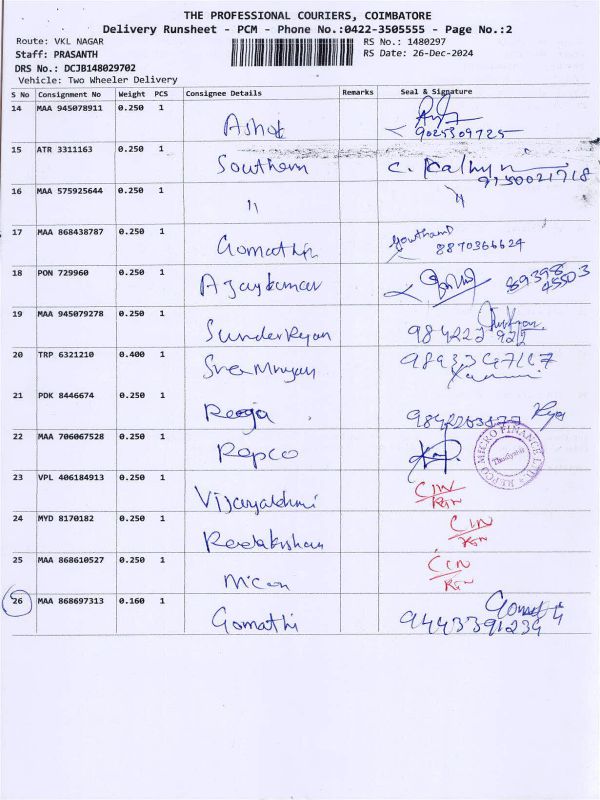 THE PROFESSIONAL COURIERS, COIMBATORE
Delivery Runsheet - PCM - Phone No.:0422-3505555 - Page No.:2
Route: VKL NAGAR RS No.: 1480297
Staff: PRASANTH RS Date: 26-Dec-2024
DRS No.: DCJB148029702
Vehicle: Two Wheeler Delivery
S No Consignment No Weight PCS Consignee Details Remarks Seal & Signature
14 MAA 945078911 0.250 1
Ashok 9025309725
15 ATR 3311163 0.250 1
Southern C. Kalhyn 9150021718
16 MAA 575925644 0.250 1
" "
17 MAA 868438787 0.250 1
Gomathi Gowtham 8870366624
18 PON 729960 0.250 1
Ajaykumar 89398 45503
19 MAA 945079278 0.250 1
984222
20 TRP 6321210 0.400 1
21 PDK 8446674 0.250 1
Rooja
22 MAA 706067528 0.250 1
Repco REPCO MICRO FINANCE LTD
23 VPL 406184913 0.250 1
Vijayalakhmi CIN
24 MYD 8170182 0.250 1
CIN
25 MAA 868610527 0.250 1
CIN
26 MAA 868697313 0.160 1
Gomathi 9443391234